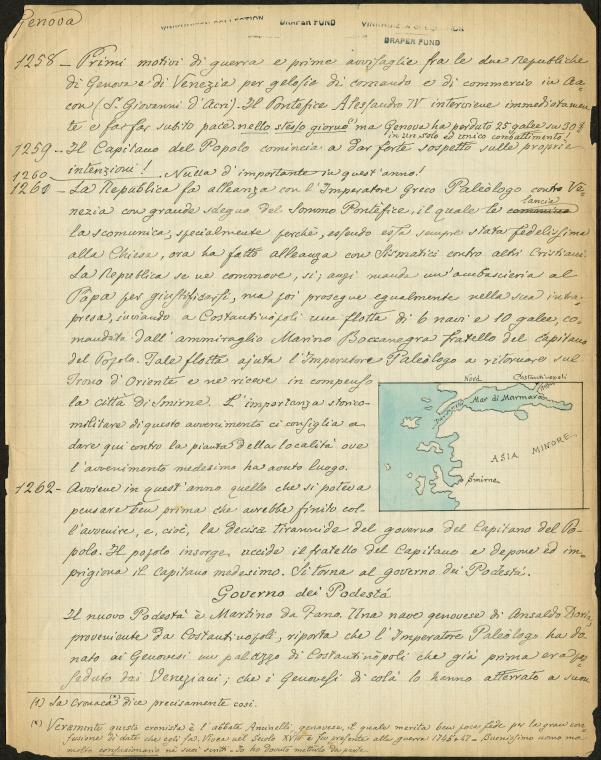 Genova
VINKHUIZEN COLLECTION DRAPER FUND
VINKHUIZEN COLLECTION
DRAPER FUND
1258 - Primi motivi di guerra e prime avvisaglie fra le due Repubbliche
di Genova e di Venezia per gelosie di comando e di commercio in Ac-
con (S. Giovanni d'Acri). Il Pontefice Alessandro IV interviene immediatamen-
te e fa far subito pace nello stesso giorno ma Genova ha perduto 25 galee su 30
in un solo ed unico combattimento!
1259 - Il Capitano del Popolo comincia a dar forte sospetto sulle proprie
intenzioni!
1260 Nulla d'importante in quest'anno!
1261 - La Repubblica fa alleanza con l'Imperatore Greco Paleòlogo contro Ve-
nezia con grande sdegno del Sommo Pontefice, il quale le lancia
la scomunica, specialmente perchè, essendo essa sempre stata fedelissima
alla Chiesa, ora ha fatto alleanza con Sismatici contro altri Cristiani.
La Repubblica se ne commove, sì; anzi manda un'ambascieria al
Papa per giustificarsi, ma poi prosegue egualmente nella sua intra-
presa, inviando a Costantinòpoli una flotta di 6 navi e 10 galee, co-
mandata dall'ammiraglio Marino Boccanegra fratello del capitano
del Popolo. Tale flotta ajuta l'Imperatore Paleòlogo a ritornare sul
Trono d'Oriente e ne riceve in compenso
la città di Smirne. L'importanza storico-
militare di questo avvenimento ci consiglia a
dare qui contro la pianta della località ove
l'avvenimento medesimo ha avuto luogo.
Nord
Costantinopoli
Mar di Marmara
Dardanelli
ASIA MINORE
Smirne
1262 - Avviene in quest'anno quello che si poteva
pensare ben prima che avrebbe finito col-
l'avvenire, e, cioè, la decisa tirannide del governo del Capitano del Po-
polo. Il popolo insorge, uccide il fratello del Capitano e depone ed im-
prigiona il Capitano medesimo. Si torna al governo dei Podestà.
Governo dei Podestà
Il nuovo Podestà è Martino da Fano. Una nave genovese di Ansaldo Doria,
proveniente da Costantinopoli, riporta che l'Imperatore Paleòlogo ha do-
nato ai Genovesi un palazzo di Costantinòpoli che già prima era pos-
seduto dai Veneziani; che i Genovesi di colà lo hanno atterrato a suon
(1) La Cronaca (*) dice precisamente così.
(*) Veramente questo cronista è l'abbate Accinelli, genovese, il quale merita ben poca fede per la gran con-
fusione di date che egli fa. Viveva nel Secolo XVIII e fu presente alla guerra 1746-47 - Buonissimo uomo ma
molto confusionario nei suoi scritti - Io ho dovuto metterlo da parte.